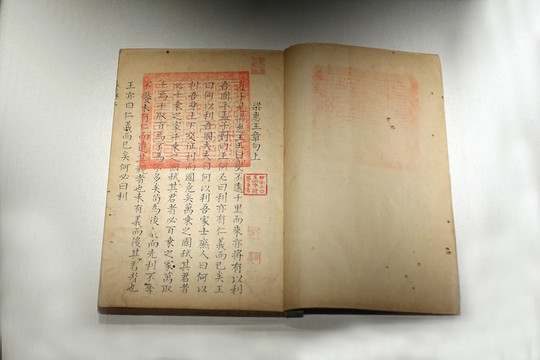 梁惠王章句上
孟子見梁惠王王曰叟不遠千里而來亦將有以利
吾國乎孟子對曰王何必曰利亦有仁義而已矣王
曰何以利吾國大夫曰何以利吾家士庶人曰何以
利吾身上下交征利而國危矣萬乘之國弒其君者
必千乘之家千乘之國弒其君者必百乘之家萬取
千焉千取百焉不為不多矣苟為後義而先利不奪
不饜未有仁而遺其親者也未有義而後其君者也
王亦曰仁義而已矣何必曰利